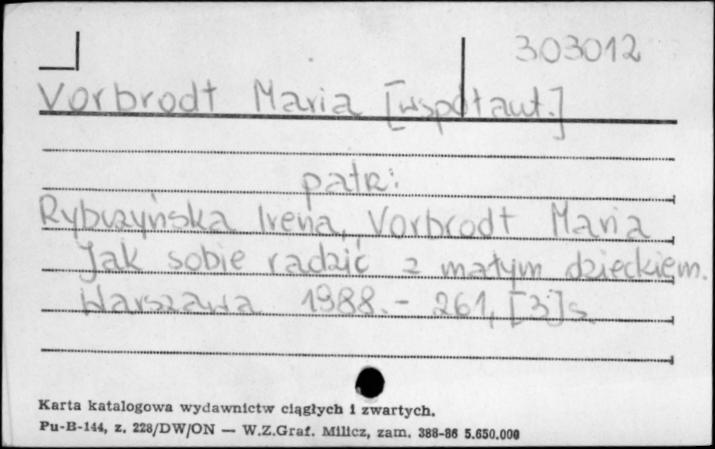 303012
Vorbrodt Maria [współaut.]
patrz:
Rybczyńska Irena, Vorbrodt Maria
Jak sobie radzić z małym dzieckiem.
Warszawa 1988. - 261, [3] s.
Karta katalogowa wydawnictw ciągłych i zwartych.
Pu-B-144, z. 228/DW/ON — W.Z.Graf. Milicz, zam. 388-86 5.650.000